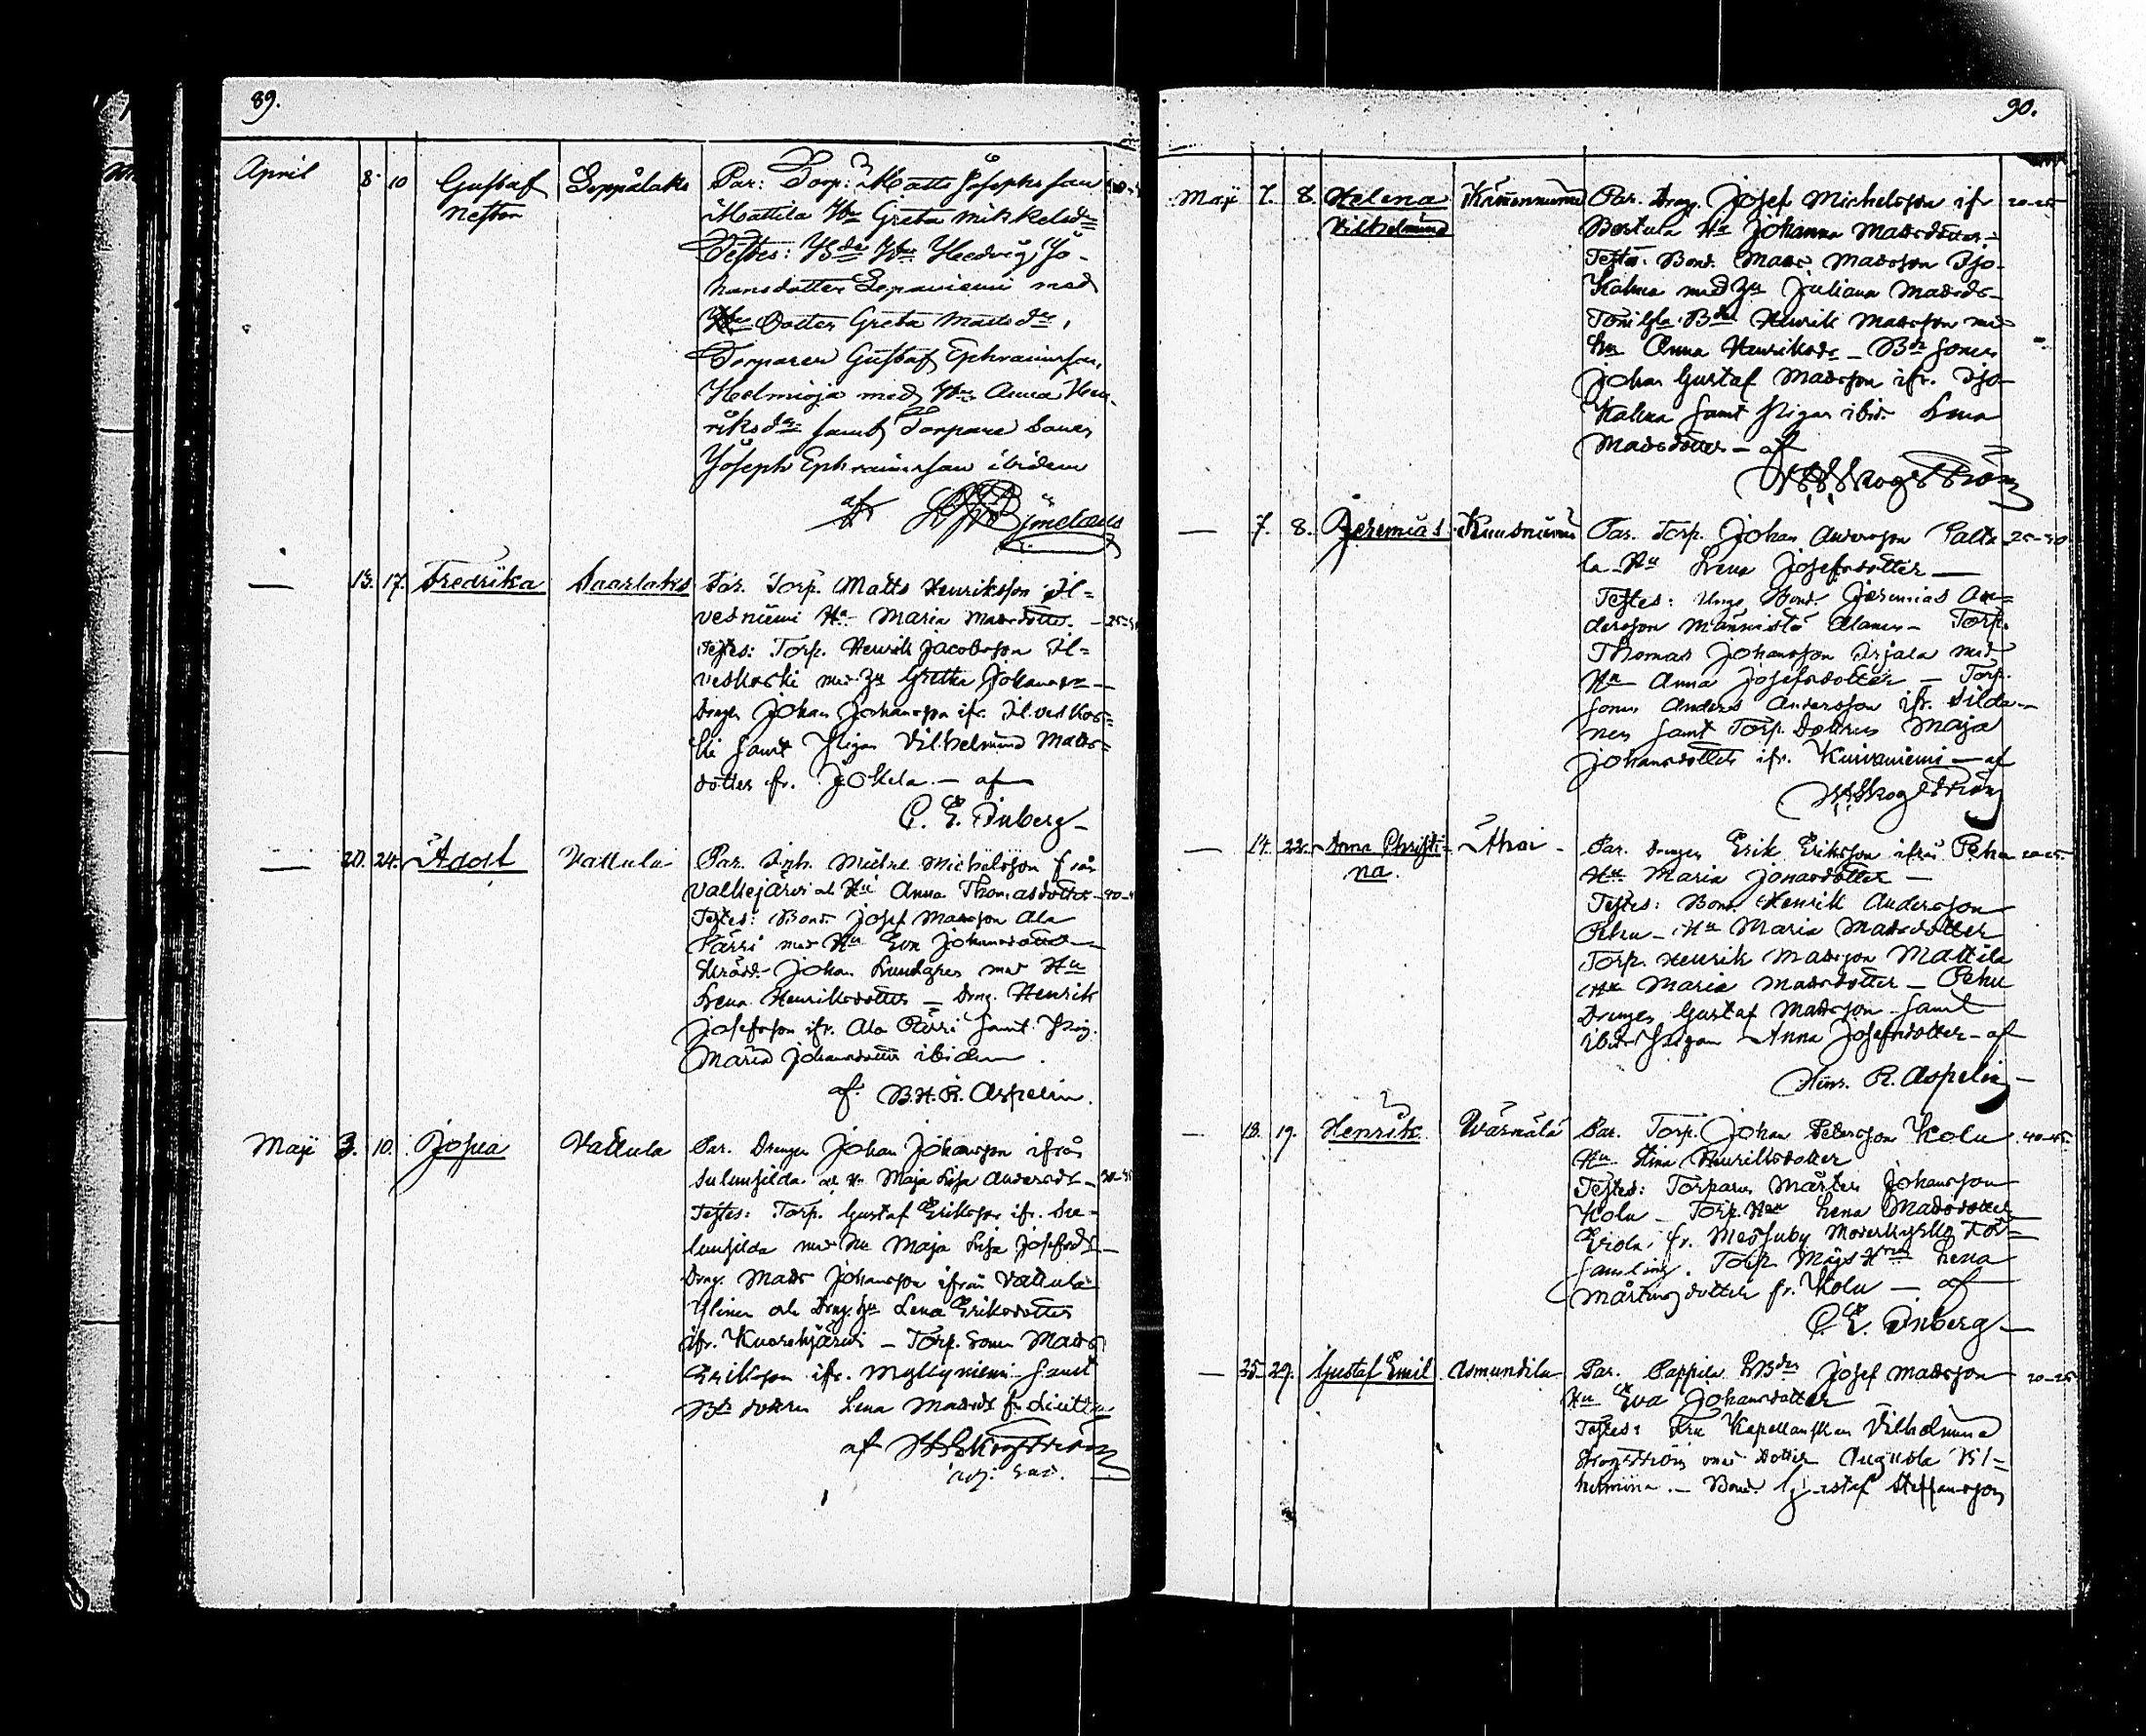 89.
April 8 10 Gustaf Neston Seppälaks Par: Torp: Matts Josephsson
Mattila Hu Greta Mikkelsdr
Testes: Bde Hu Hedvig Jo-
hansdotter Lepaniemi med
Dotter Greta Mattsdr,
Torparen Gustaf Ephraimsson
Helmioja med Hu Anna Hen-
riksdr samt Torpare Sonen
Joseph Ephraimsson ibidem
af
13. 17. Fredrika Saarlaks Par. Torp. Matts Henriksson Il=
vesniemi Hu Maria Matsdotter
Testes: Torp. Henrik Jacobsson Il=
veskoski med Hu Gretha Johansdr
Dräng Johan Johansson ifr. Ilveskos=
ki samt Pigan Vilhelmina Matts=
dotter fr. Jokela. — af
C. E. Inberg
20. 24. Adolf Vallula Par. Inh. Michel Michelsson från
Valkejärvi och Hu Anna Thomasdotter
Testes: Bond. Josef Matsson Ala
Pärri med Hu Eva Johansdotter
Skrädd. Johan Lundgren med Hu
Lena Henriksdotter — Dräng. Henrik
Josefsson ifr. Ala Pärri samt Pig.
Maria Johansdotter ibidem.
af B.H.R. Aspelin.
Maji 3. 10. Josua Vallula Par. Drängen Johan Johansson ifrån
och Hu Maja Lisa Andersdr
Testes: Torp. Gustaf Eriksson ifr.
med Hu Maja Lisa Josefsdr
Dräng. Mats Johansson ifrån Vallula
Ylinen och Dräng. Hu Lena Eriksdotter
ifr. — Torp. Sonen Mats
Eriksson ifr. Myllyniemi samt
Bds dottern Lena Matsdr fr.
af
90.
Maji 7. 8. Helena Vilhelmina Par. Dräng. Josef Michelsson ifr. 20-25
Hu Johanna Matsdotter
Testes. Bond. Mats Matsson Iso-
Kalma med Hu Juliana Matsdr
Bden Henrik Matsson med
Hu Anna Henriksdr — Bde sonen
Johan Gustaf Matsson ifr. Iso-
Kalma samt Pigan ibid. Lena
Matsdotter — af
7. 8. Jeremias Kuusniemi Par. Torp. Johan Andersson Palta 25-30
la Hu Lena Josefsdotter
Testes: Unge Bond. Jeremias An=
dersson Männistö Alanen — Torp.
Thomas Johansson Irjala med
Hu Anna Josefsdotter — Torp.
sonen Anders Andersson ifr.
nen samt Torp. Dottren Maja
Johansdotter ifr. Kuivaniemi — af
14. 22. Anna Christi=na. Par. Drängen Erik Eriksson ifrån Pehu 20-25.
Hu Maria Jonasdotter —
Testes: Bond. Henrik Andersson
Pehu — Hu Maria Matsdotter
Torp. Henrik Matsson Mattila
Hu Maria Matsdotter — Pehu
Drängen Gustaf Matsson samt
ibid. Pigan Anna Josefsdotter — af
R. Aspelin
18. 19. Henrik Wärnälä Par. Torp. Johan Petersson Kolu 40-45.
Hu Stina Henriksdotter
Testes: Torparen Mårten Johansson
Kolu — Torp. Hu Lena Matsdotter
fr. Mosuby Moderkyrko För=
samling. Torp. Mågs Hun Lena
Mårtensdotter fr. Kolu — af
C. E. Inberg
25. 29. Gustaf Emil Asmundila Par. Pappila Josef Matsson 20-25
Hu Eva Johansdotter
Testes: Fru Kapellanskan Vilhelmina
Skogström med Dotter Augusta Vil=
helmina. — Bond. Gustaf Steffansson